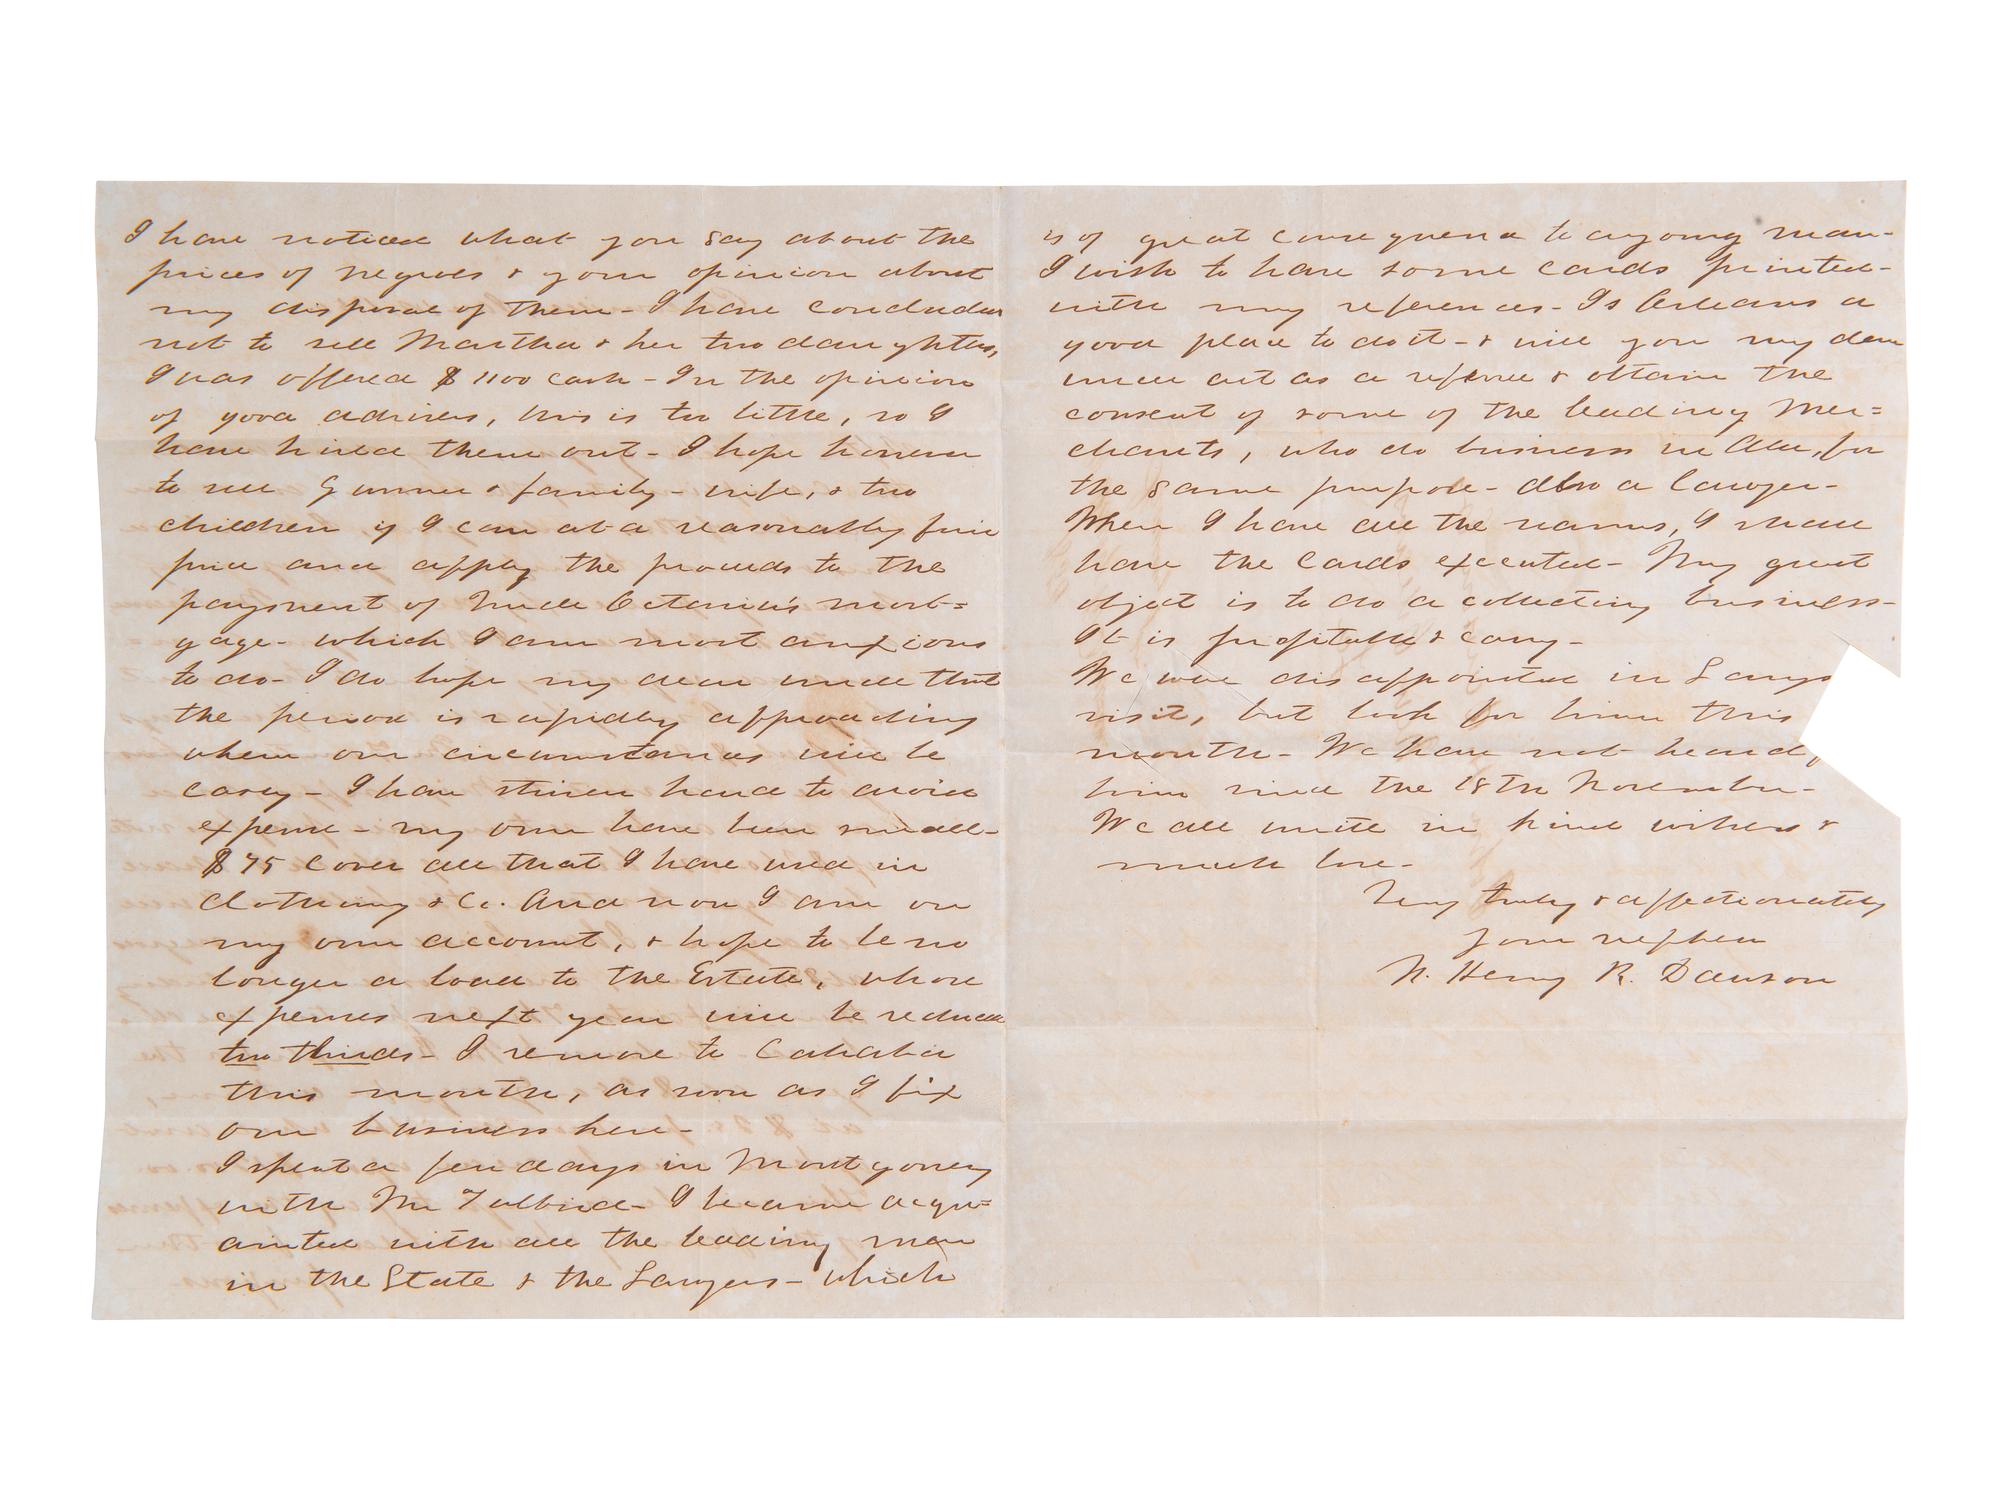 I have noticed what you say about the
prices of negroes & your opinion about
my disposal of them - I have concluded
not to sell Martha & her two daughters,
I was offered $1100 cash - In the opinion
of good advisers, this is too little, so I
have hired them out - I hope however
to sell & family - wife, & two
children if I can at a reasonably fair
price and apply the proceeds to the
payment of Uncle Octavius's mort=
gage - which I am most anxious
to do - I do hope my dear uncle that
the period is rapidly approaching
when our circumstances will be
easy - I have striven hard to avoid
expense - my own have been small -
$75 cover all that I have used in
clothing &c. And now I am on
my own account, & hope to be no
longer a load to the Estate, whose
expenses next year will be reduced
two thirds - I remove to Cahaba
this month, as soon as I fix
our business here -
I spent a few days in Montgomery
with Mr - I became acqu=
ainted with all the leading men
in the State & the Lawyers - which
is of great consequence to a young man -
I wish to have some cards printed -
with my references - Is Orleans a
good place to do it - & will you my dear
uncle act as a reference & obtain the
consent of some of the leading Mer=
chants, who do business in Ala, for
the same purpose - also a lawyer -
When I have all the names, I shall
have the Cards executed - My great
object is to do a collecting business -
It is profitable & easy -
We were disappointed in
visit, but look for him this
month - We have not heard
him since the 18th November -
We all unite in kind wishes &
much love -
Very truly & affectionately
Your nephew
N. Henry R. Dawson